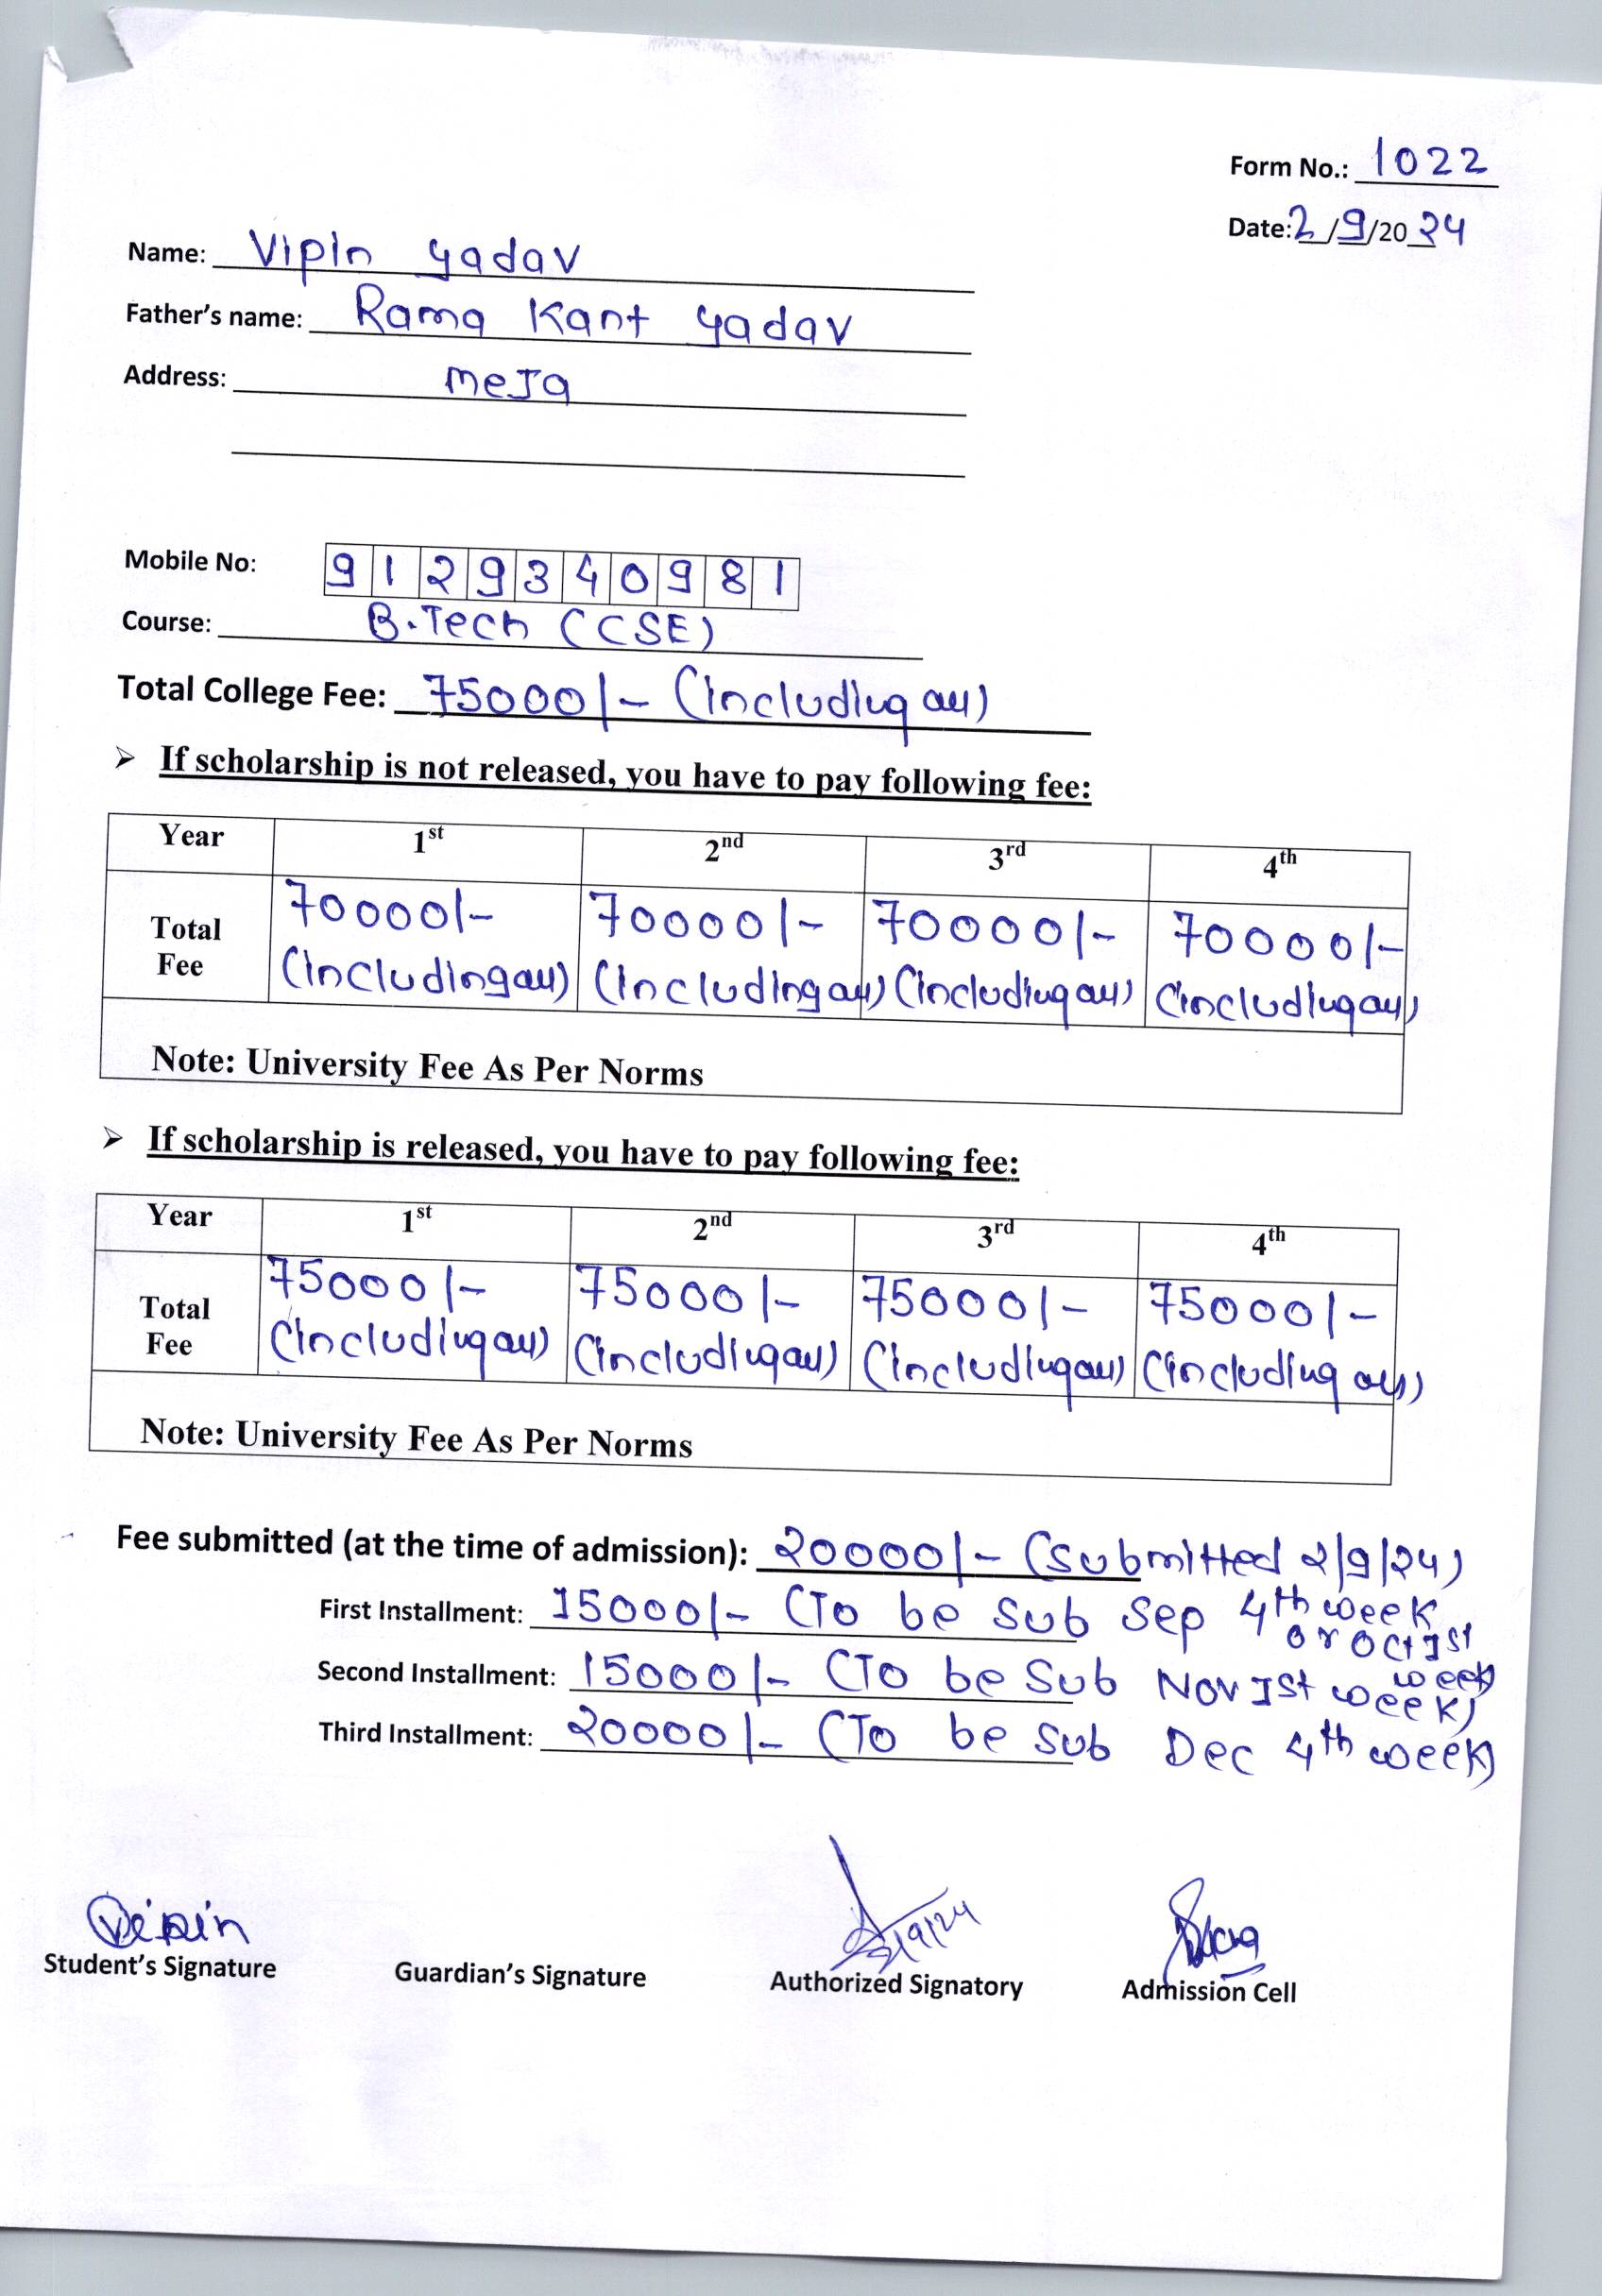 Form No.: 1022
Date: 2/9/2024
Name: Vipin Yadav
Father's name: Rama Kant Yadav
Address: meJa
Mobile No: 9129340981
Course: B.Tech (CSE)
Total College Fee: 75000/- (Including all)
➢ If scholarship is not released, you have to pay following fee:
Year 1st 2nd 3rd 4th
Total Fee 70000/- 70000/- 70000/- 70000/-
(Including all) (Including all) (Including all) (Including all)
Note: University Fee As Per Norms
➢ If scholarship is released, you have to pay following fee:
Year 1st 2nd 3rd 4th
Total Fee 75000/- 75000/- 75000/- 75000/-
(Including all) (Including all) (Including all) (Including all)
Note: University Fee As Per Norms
Fee submitted (at the time of admission): 20000/- (Submitted 2/9/24)
First Installment: 15000/- (To be Sub Sep 4th week
or Oct Ist week)
Second Installment: 15000/- (To be Sub Nov Ist week)
Third Installment: 20000/- (To be Sub Dec 4th week)
Vipin
Student's Signature Guardian's Signature Authorized Signatory Admission Cell